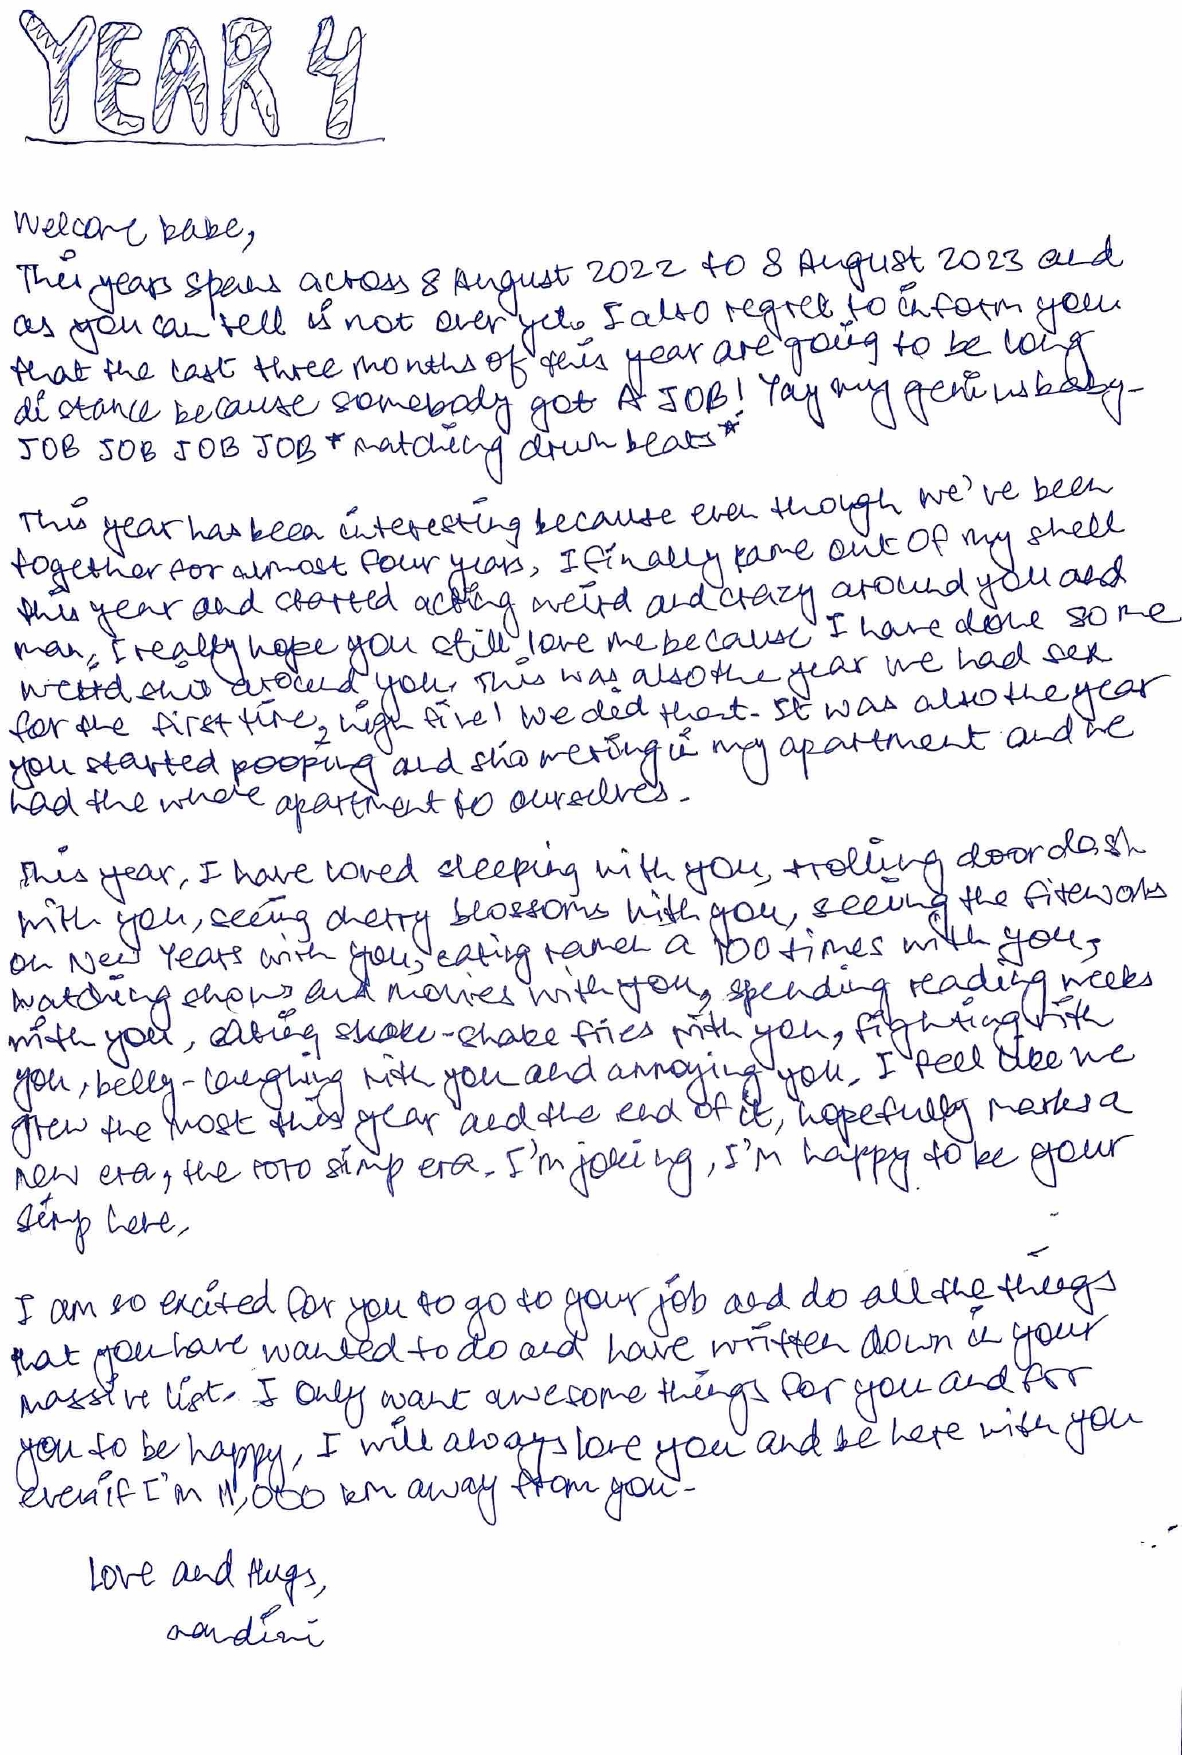 YEAR 4
Welcome babe,
This years spans across 8 August 2022 to 8 August 2023 and
as you can tell is not over yet. I also regret to inform you
that the last three months of this year are going to be long
distance because somebody got A JOB! Yay my genius baby-
JOB JOB JOB JOB *matching drum beats*
This year has been interesting because even though we've been
together for almost four years, I finally came out of my shell
this year and started acting weird and crazy around you and
man, I really hope you still love me because I have done some
weird shit around you. This was also the year we had sex
for the first time, high five! We did that. It was also the year
you started pooping and showering in my apartment and we
had the whole apartment to ourselves.
This year, I have loved sleeping with you, trolling doordash
with you, seeing cherry blossoms with you, seeing the fireworks
on New Years with you, eating ramen a 100 times with you,
watching shows and movies with you, spending reading weeks
with you, eating shake-shake fries with you, fighting with
you, belly-laughing with you and annoying you. I feel like we
grew the most this year and the end of it, hopefully marks a
new era, the roro simp era. I'm joking, I'm happy to be your
simp here.
I am so excited for you to go to your job and do all the things
that you have wanted to do and have written down in your
massive list. I only want awesome things for you and for
you to be happy, I will always love you and be here with you
even if I'm 11,000 km away from you.
Love and Hugs,
nandini